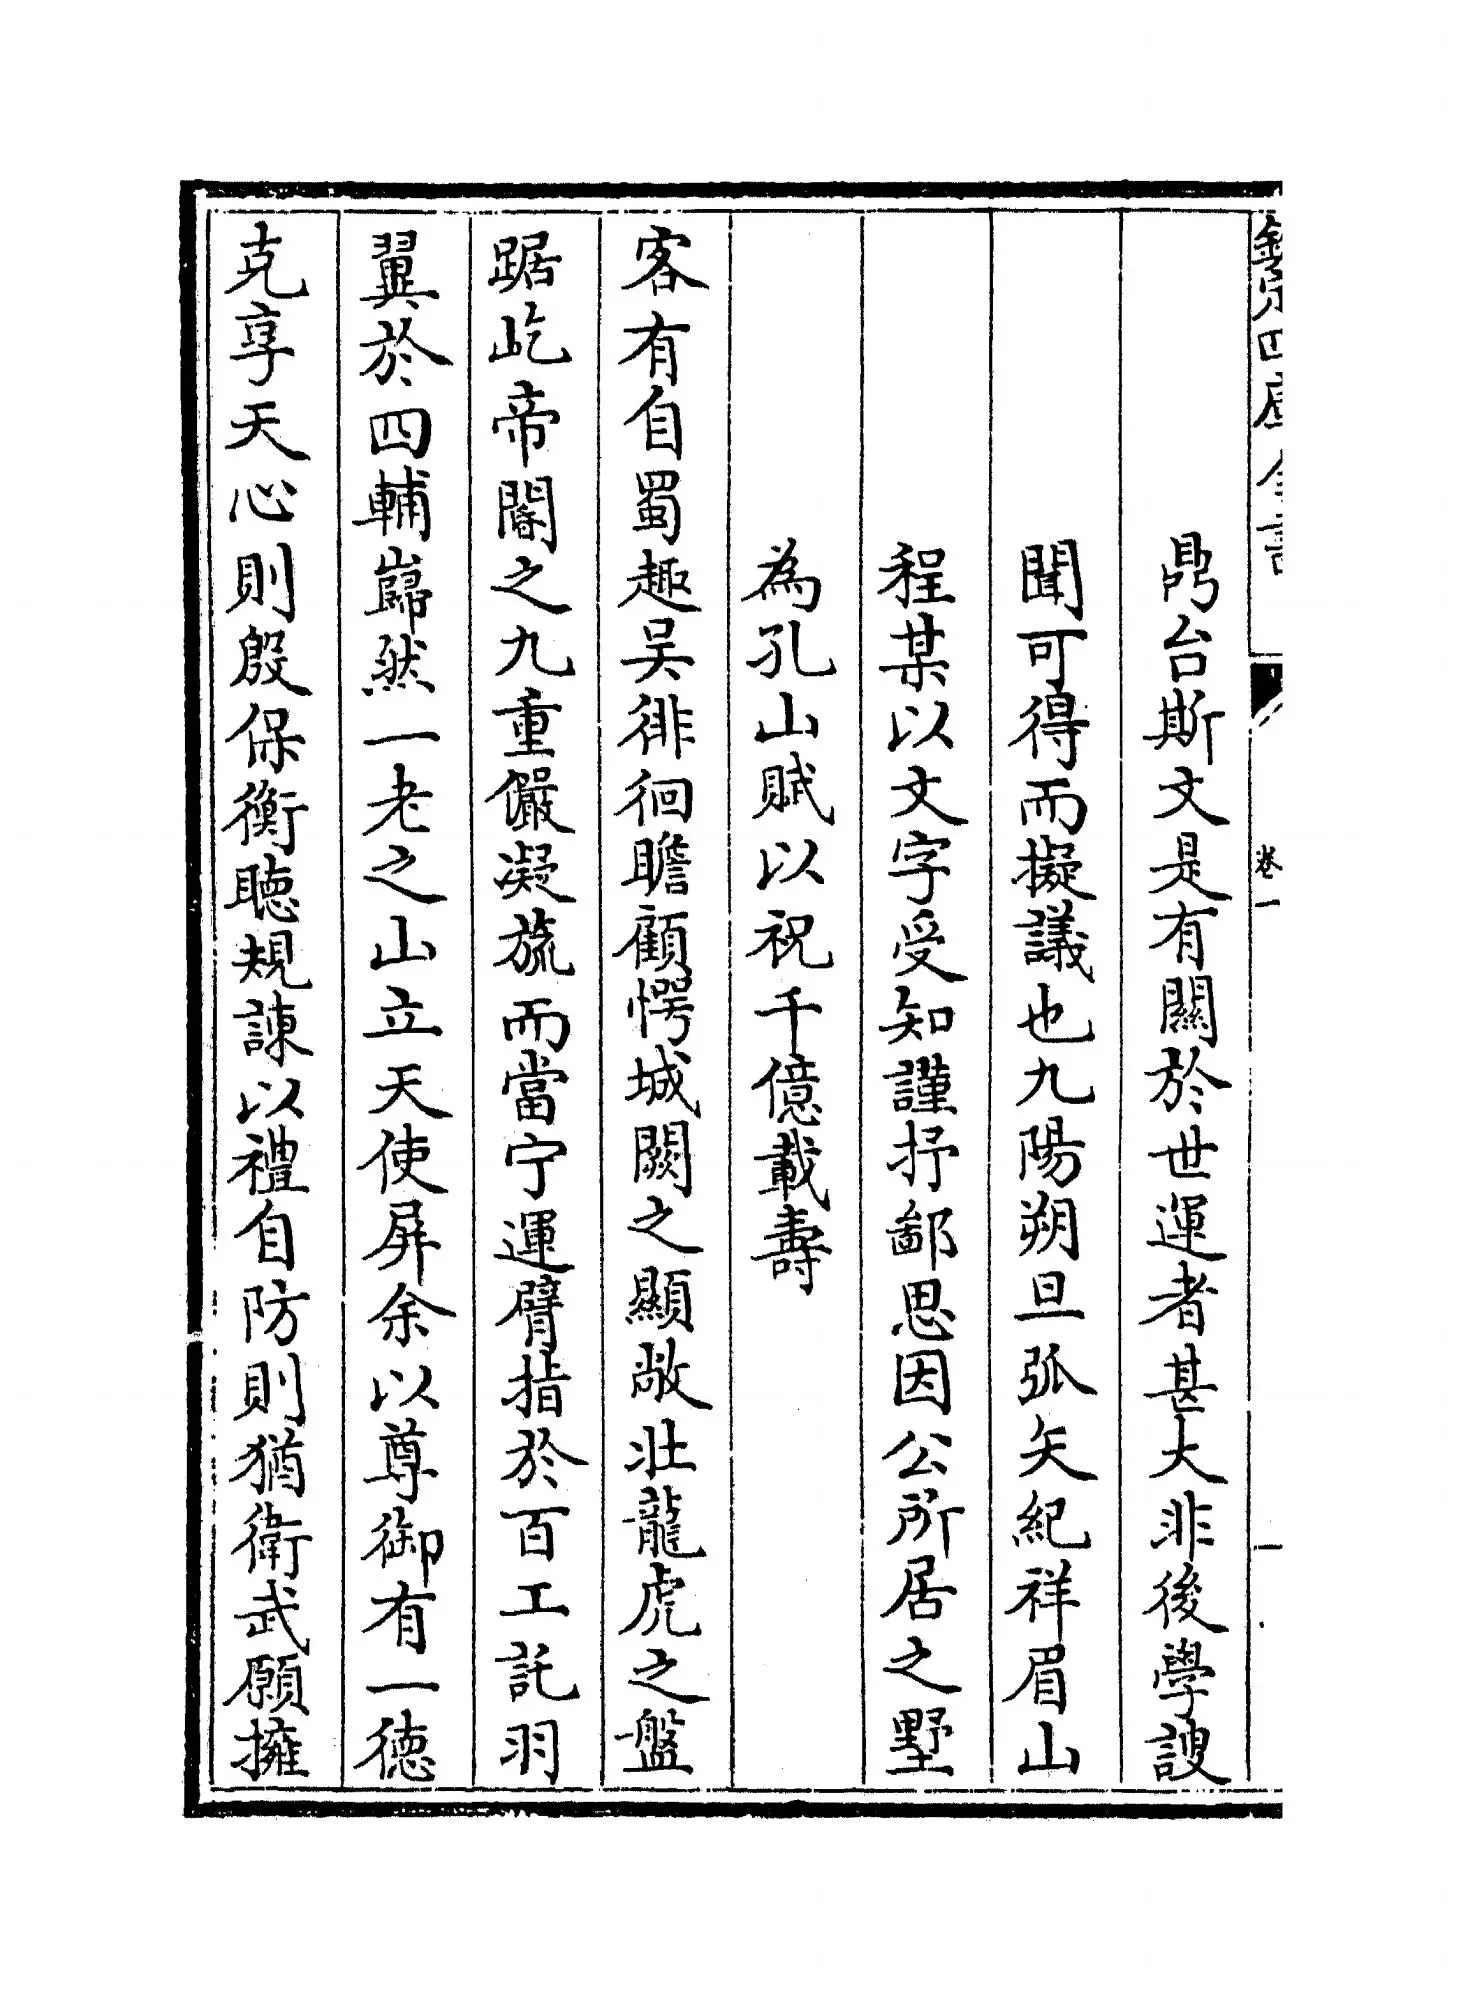 欽定四庫全書
卷一
鼎台斯文是有關於世運者甚大非後學謏
聞可得而擬議也九陽朔旦弧矢紀祥眉山
程某以文字受知謹抒鄙思因公所居之墅
為孔山賦以祝千億載壽
客有自蜀趣吳徘徊瞻顧愕城闕之顯敞壯龍虎之盤
踞屹帝閽之九重儼凝旒而當宁運臂指於百工託羽
翼於四輔巋然一老之山立天使屏余以尊御有一德
克享天心則殷保衡聽規諫以禮自防則猶衛武願擁